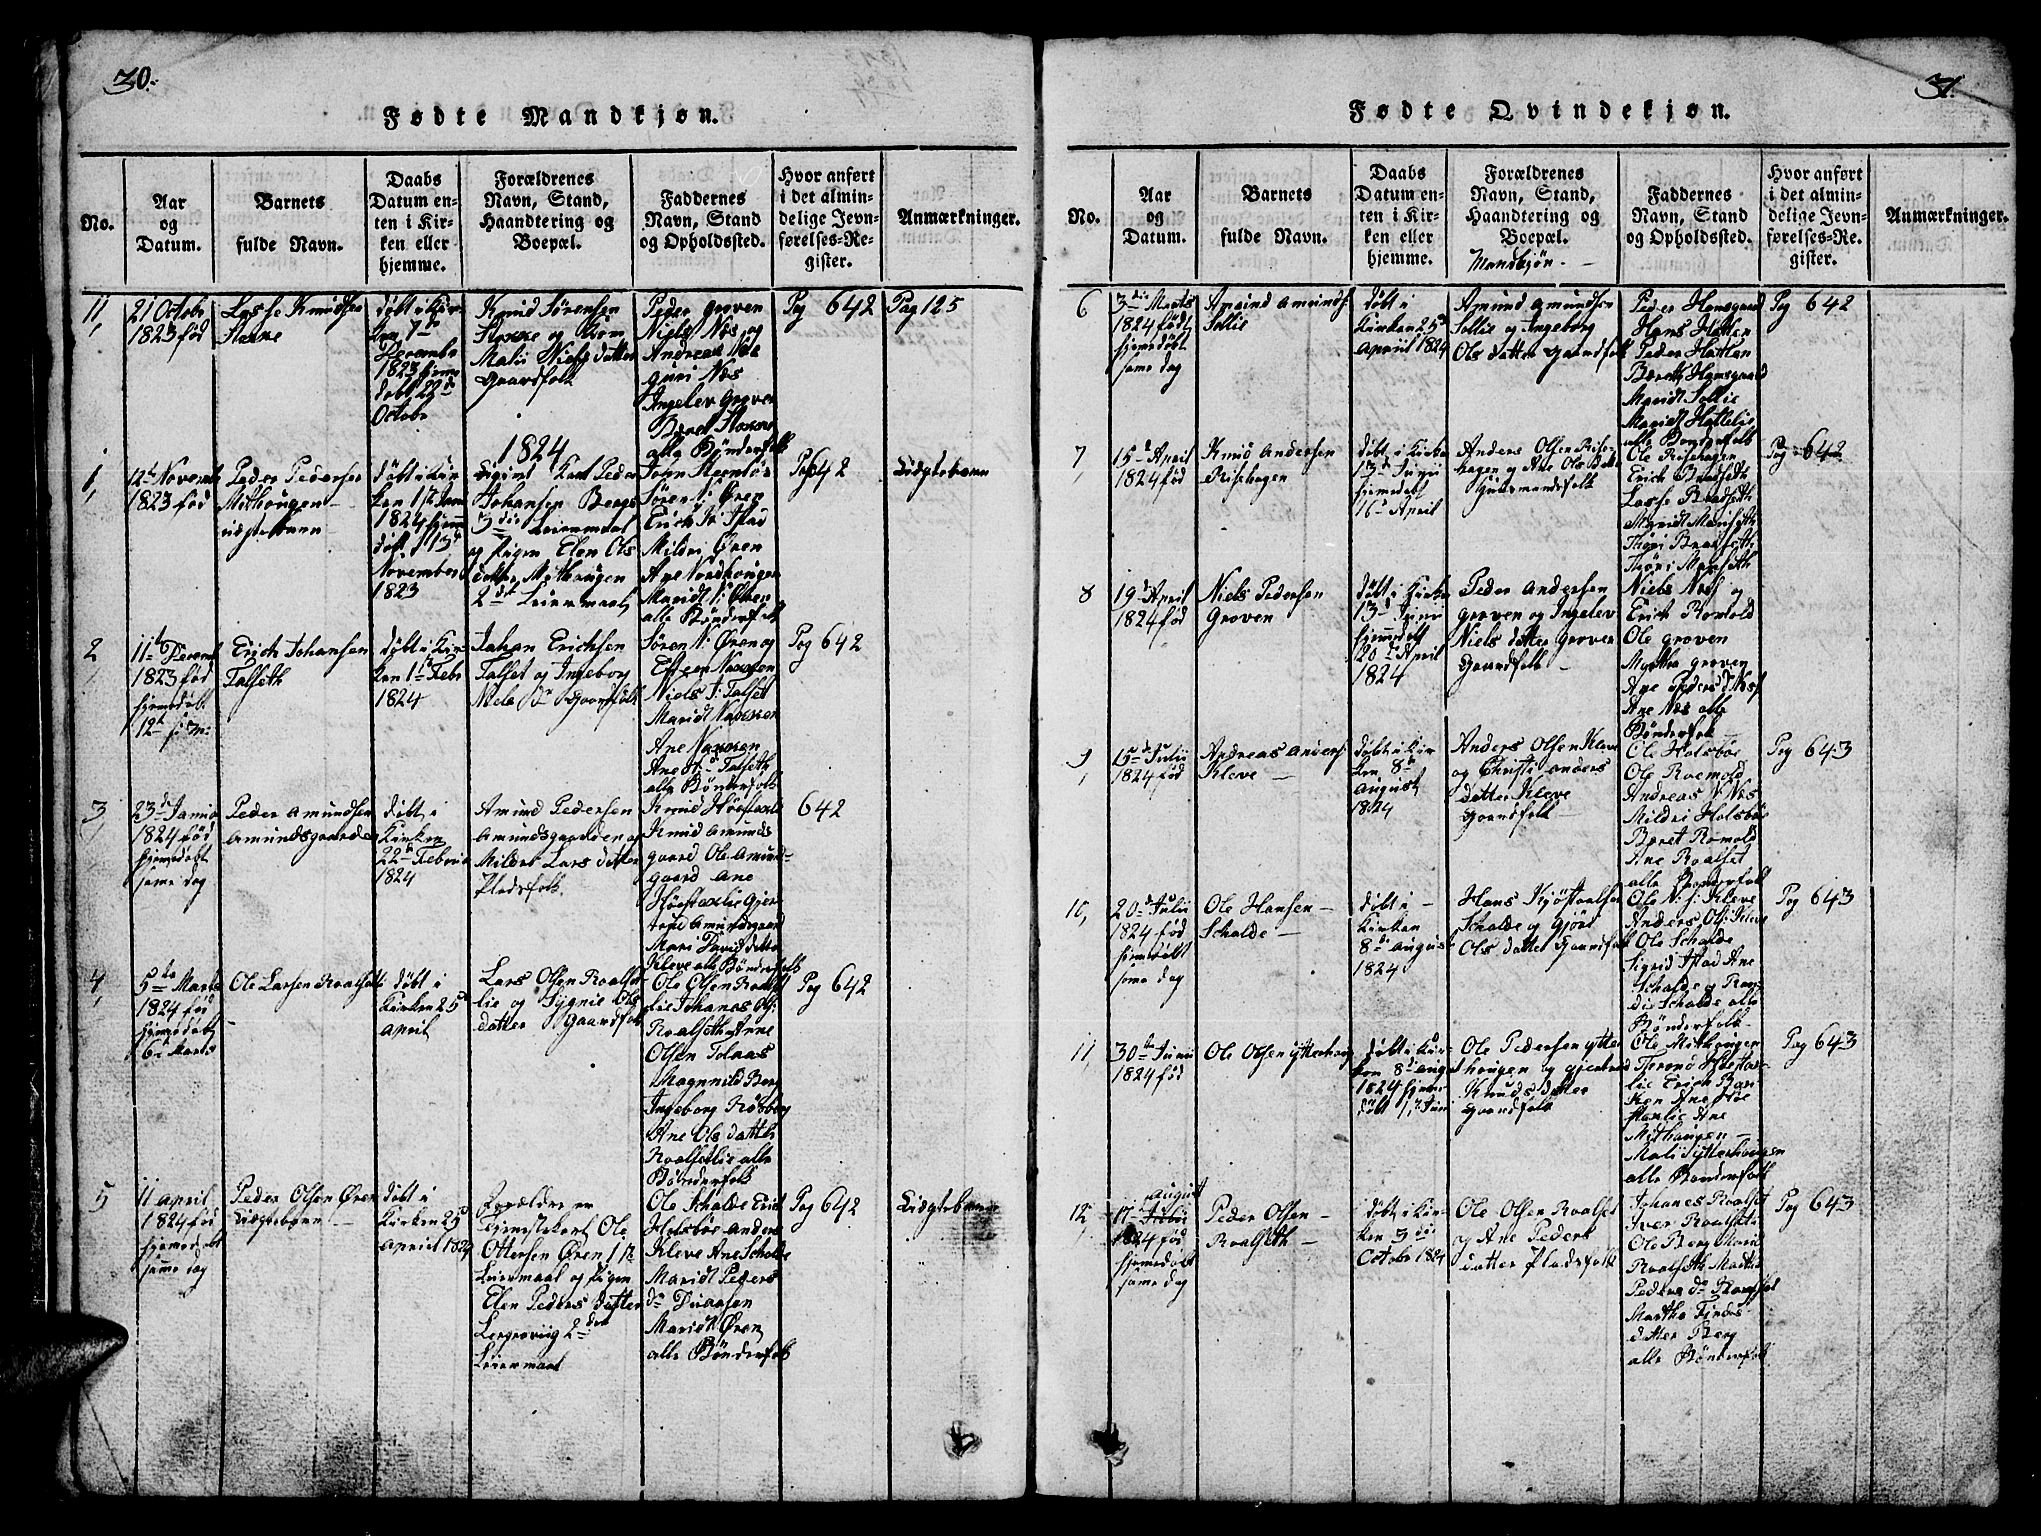 30.
Fødte Mandkjøn.
No.
Aar
og
Datum.
Barnets
fulde Navn.
Daabs
Datum en-
ten i Kir-
ken eller
hjemme.
Forældrenes
Navn, Stand,
Haandtering og
Boepæl.
Faddernes
Navn, Stand
og Opholdssted.
Hvor anført
i det almin-
delige Jevn-
førelses-Re-
gister.
Anmærkninger.
11,
21 Octobr
1823 fød
Lasse Knudsen
døbt i Kir-
ken 7de
Decembr
1823 hjeme
døbt 22d
Octobr
Knud Sørensen
og Kone
Mali Niels datter
Gaardfolk
Peder Groven
Niels Næs og
Andreas Næs
Guri Næs
Ingelev Groven
Beret
alle Bønderfolk
Pag 642
Pag 125
1824
1,
12te Novemb
1823 fød
Peder Pedersen
Mithougen
uægtebarn
døbt i Kir
ken 1ste Janu
1824 hjemme
døbt 13d
November
1823
Peder
Johansen Bergs
3die Leiermaal
og Pigen Elen Ols
datter Mithougen
2det Leiermaal
Søren N: Øren
Erich Istad
Mildri Øren
Ane Nordhougen
Maridt Øren
alle Bønderfolk
Pag 642
Uægtebarn
2
11te Decemb
1823 fød
hjemedøbt
12te s: m:
Erich Johansen
Talseth
døbt i Kir-
ken 1te Febr
1824
Johan Erichsen
Talset og Ingeborg
Niels dr Gaardfolk
Søren N: Øren og
Niels J: Talset
Maridt
Ane
Ane Talseth
alle Bønderfolk
Pag 642
3,
23de Januar
1824 fød
hjemedøbt
same dag
Peder Amundsen
Amundsgaarden
døbt i
Kirken
22de Februar
1824
Amund Pedersen
Amundsgaarden og
Mildri Lars datter
Pladsfolk
Knud
Knud Amunds
gaard Ole Amund-
gaard Ane
Gjer
true Amundsgaard
Mari David datter
Kleve alle Bønderfolk
642
4,
5te Marts
1824 fød
hjemedøbt
6te Marts
Ole Larsen Roalset
døbt i
Kirken 25d
April
Lars Olsen Roalset
lie og Sygnie Ols
datter Gaardfolk
Ole Olsen Roalset
lie Johanes Ol:
Roalseth Anne
Olsen Tolaas
Magnnild Berg
Ingeborg Røsberg
Ane Ols datter
Roalsetlie alle
Bønderfolk
Pag 642
5
11 April
1824 fød
hjemedøbt
same dag
Peder Olsen Øren
Uægtebarn
døbt i
Kirken 25d
April 1824
Forældre er
Ole
Ottersen Øren 1ste
Leiermaal og Pigen
Elen Peders datter
Lergroviig 2det
Leiermaal
Ole Schalde Erich
Holsbøe Anders
Kleve Ane Schalde
Maridt Peders
dr
Maridt Øren
alle Bønderfolk
Pag 642
Uægtebarn
31.
Fødte Qvindekjøn.
No.
Aar
og
Datum.
Barnets
fulde Navn.
Daabs
Datum en-
ten i Kir-
ken eller
hjemme.
Forældrenes
Navn, Stand,
Haandtering og
Boepæl.
Mandkjøn.
Faddernes
Navn, Stand
og Opholdssted.
Hvor anført
i det almin-
delige Jevn-
førelses-Re-
gister.
Anmærkninger.
6
3die Marts
1824 født
hjemedøbt
same dag
Amund Amunds:
Sollie
døbt i
Kirken 25d
April 1824
Amund Amundsen
Sollie og Ingeborg
Ols datter Gaardfolk
Peder Hamsgaard
Hans Hatlen
Peder Hatlen
Bereth Hamsgaard
Maridt Sollie
Maridt Hattelie
alle Bønderfolk
Pag 642
7
15d April
1824 fød
Knud Andersen
Risehagen
døbt i Kirke
13d Junii
hjemedøbt
16d April
Anders Olsen Rise-
hagen og Ane Ols datter
Huusmandsfolk
Ole Risehagen
Erich Bredseth
Lasse Bredseth
Maridt
Thøri Bredseth
Thøri
Pag 642
8
19d April
1824 fød
Niels Pedersen
Groven
døbt i Kirke
13d Junii
hjemedøbt
20de April
1824
Peder Andersen
Groven og Ingelev
Niels datter Groven
Gaardfolk
Niels Næs og
Erich Romold
Ole Groven
Marthe Groven
Ane Peders d Næs
Ane Næs alle
Bønderfolk
9,
15de Julii
1824 fød
Andreas Anders:
Kleve
døbt i Kir
ken 8de
August
1824
Anders Olsen Kleve
og Christi Anders
datter Kleve
Gaardfolk
Ole Holsbøe
Ole Roemold
Andreas N: Næs
Mildri Holsbøe
Beret Romold
Ane Roalset
alle Bønderfolk
Pag 643
10,
20de Julii
1824 fød
hjemedøbt
same dag
Ole Hansen
Schalde
døbt i
Kirken
8de August
1824
Hans Kjøstaalsen
Schalde og Gjøri
Ols datter Gaardfolk
Ole N: s: Kleve
Anders Ol: Kleve
Ole Schalde
Sigrid Istad Ane
Schalde og Ran-
di Schalde alle
Bønderfolk
Pag 643
11,
30te Junii
1824 fød
Ole Olsen Ytterhoug
døbt i Kir-
ken 8d Augu
1824 hjeme
døbt 1te Juli
Ole Pedersen Ytter
hougen og Gjertrud
Knudsdatter
Gaardfolk
Ole Mithougen
lie Erich
Ane
Ane
Mithaugen
Mali Ytterhougen
alle Bønderfolk
Pag 643
12,
August
17. Julii
1824 fød
hjemedøbt
same dag
Peder Olsen
Roalseth
døbt i Kir-
ken 3die
Octobr 1824
Ole Olsen Roalset
og Ane Peders
datter Pladsfolk
Johanes Roalset
Iver Roalset
Ole Berg Marid
Roalseth Marthe
Peders dr Roalset
Martha
datter Berg
alle Bønderfolk
Pag 643